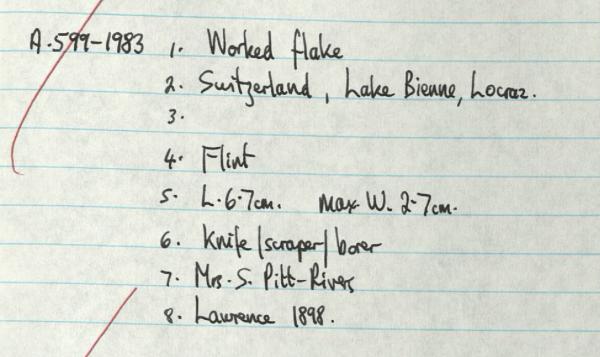 A.599-1983 1. Worked flake
2. Switzerland, Lake Bienne, Locraz.
3.
4. Flint
5. L. 6.7cm. Max. W. 2.7cm.
6. Knife/scraper/borer
7. Mrs. S. Pitt-Rivers
8. Lawrence 1898.